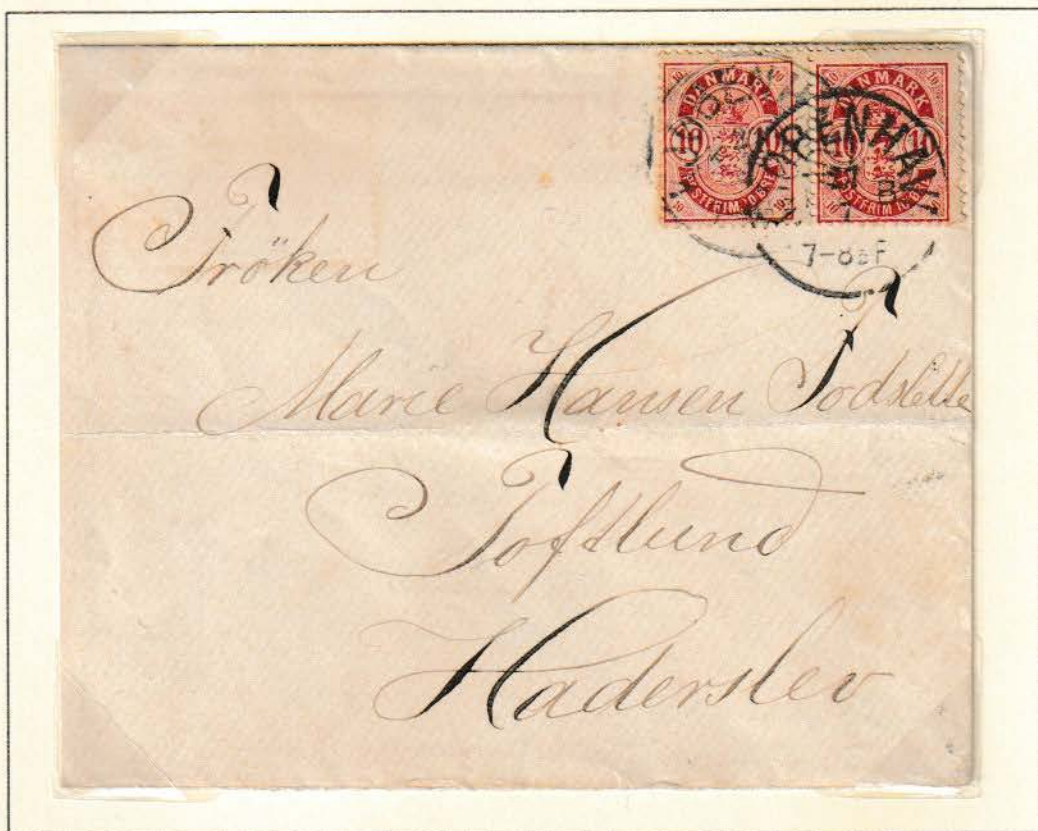 DANMARK
10 10
POSTFRIM. 10 ØRE
DANMARK
10 10
POSTFRIM. 10 ØRE
KJØBENHAVN
7-8½F
Fröken
Marie Hansen
Toftlund
Haderslev